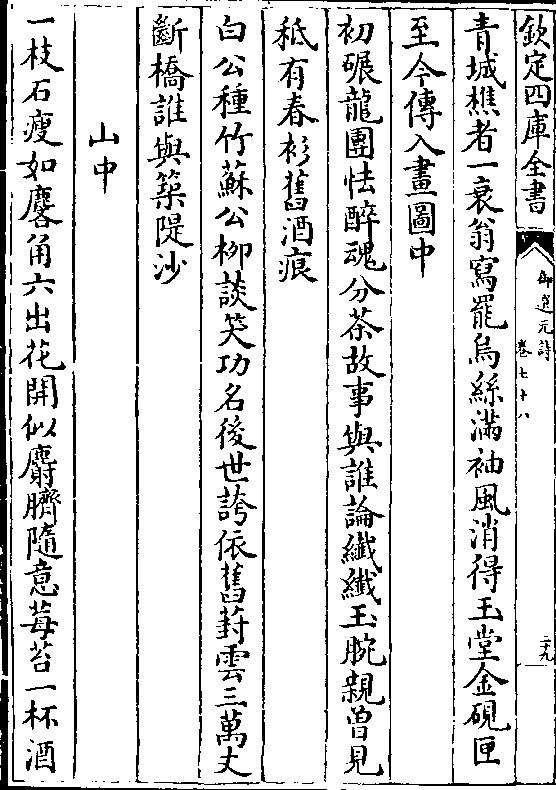 欽定四庫全書
御選元詩
卷七十八
二九
青城樵者一衰翁寫罷烏絲滿袖風消得玉堂金硯匣
至今傳入畫圖中
初碾龍團怯醉魂分茶故事與誰論纖纖玉腕親曾見
秪有春衫舊酒痕
白公種竹蘇公柳談笑功名後世誇依舊葑雲三萬丈
斷橋誰與築隄沙
山中
一枝石瘦如麏角六出花開似麝臍隨意莓苔一杯酒